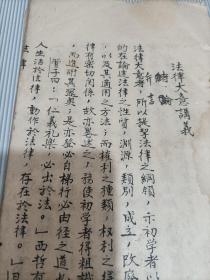 法律大意講義
緒言
法律大意者，所以提挈法律之綱領，示初學者以
的在論述法律之性質，淵源，類別，成立，改廢
，以及其適用之方法；而權利之種類，權利之得
律有密切關係，故亦畧述之，務使初學者得粗知
，而進研其窔奧；是亦登必自梯行必由徑之道也
管子曰：「仁義礼樂，必出於法。」西哲有
人生活於法律，動作於法律，存在於法律。」